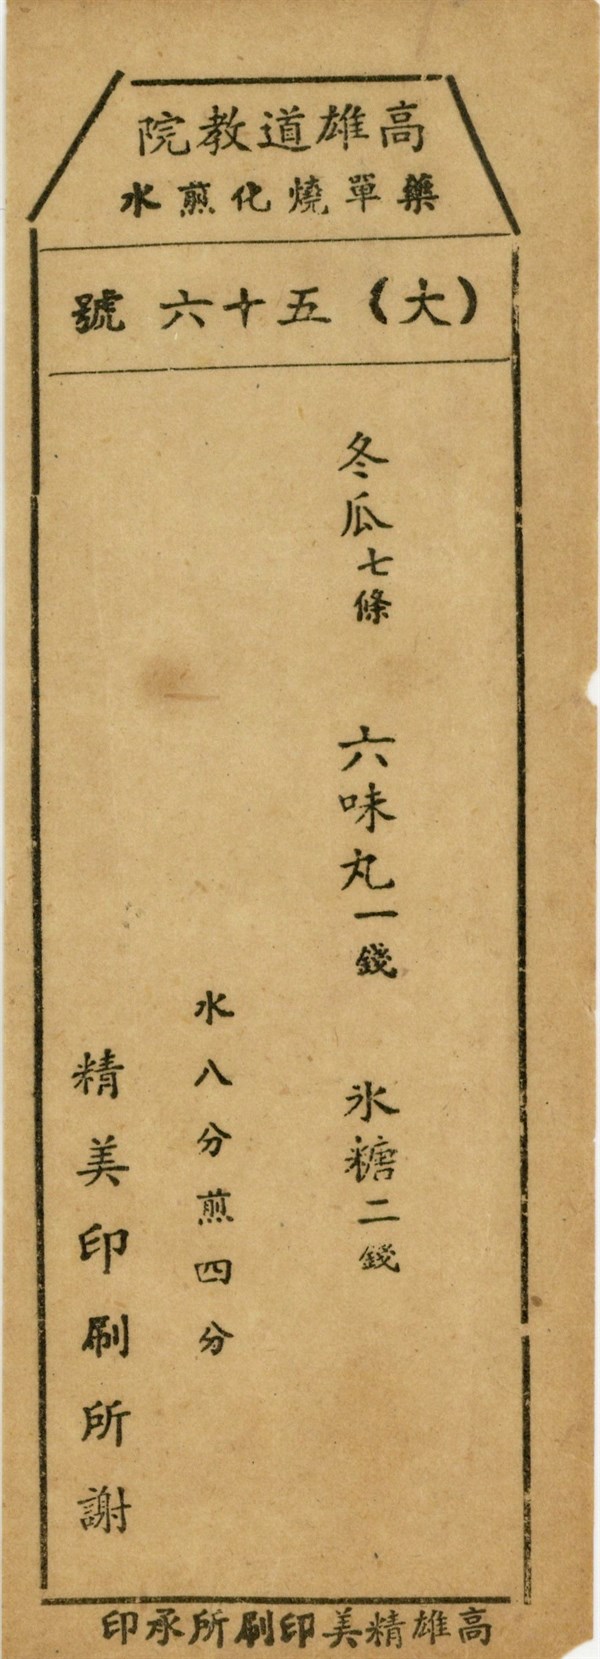 高雄道教院
藥單燒化煎水
（大）五十六號
冬瓜七條　六味丸一錢　氷糖二錢
水八分煎四分
精美印刷所謝
高雄精美印刷所承印